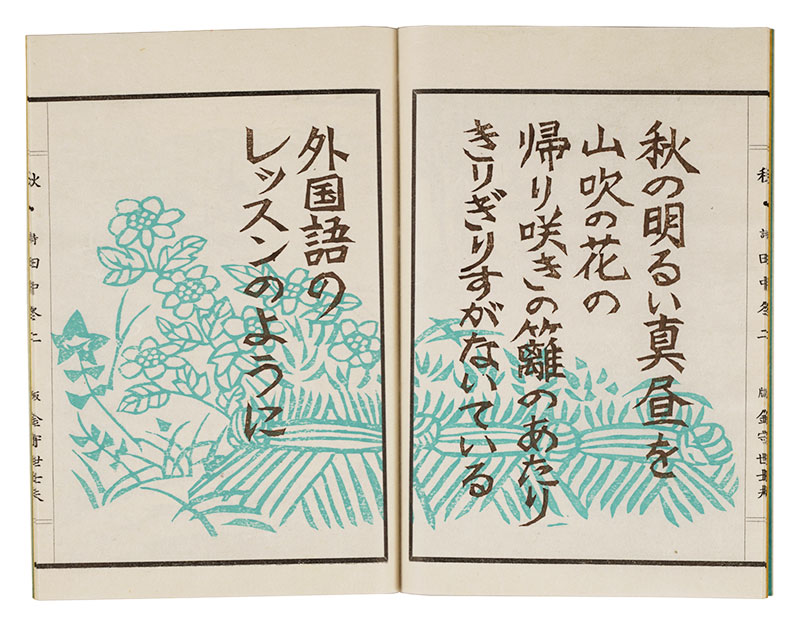 秋の明るい真昼を
山吹の花の
帰り咲きの籬のあたり
きりぎりすがないている
外国語の
レッスンのように
秋
詩 田中冬二
版 金守世士夫
秋
詩 田中冬二
版 金守世士夫